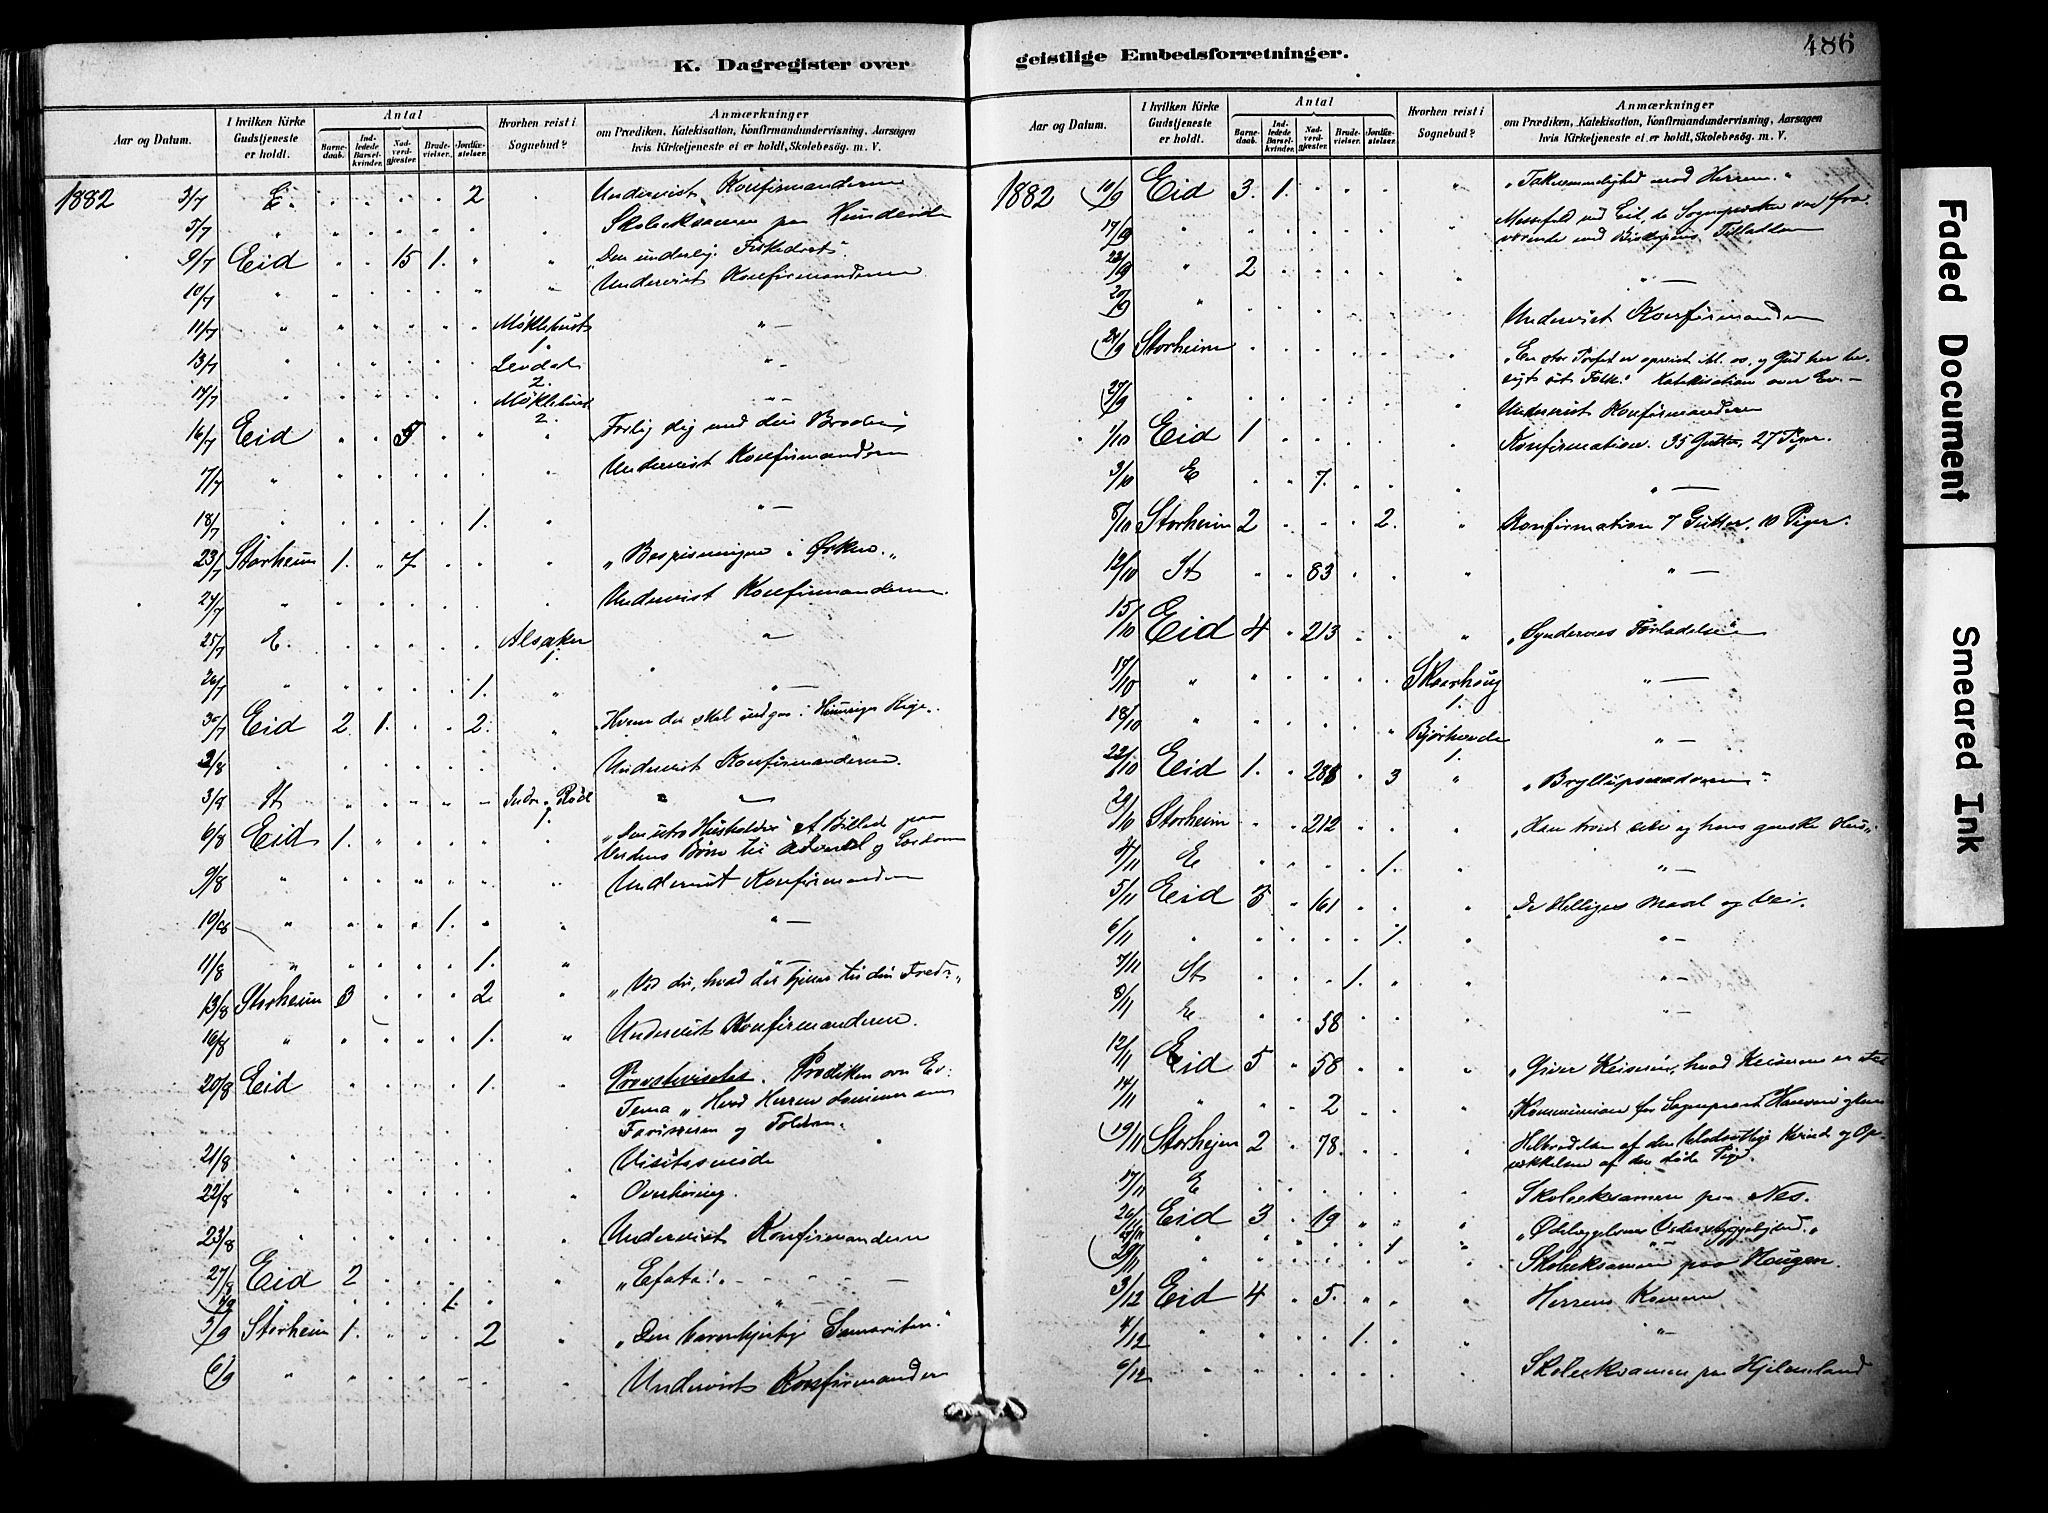 486
K. Dagregister over
geistlige Embedsforretninger.
Aar og Datum. I hvilken Kirke Gudstjeneste er holdt. Antal Barnedaab. Indledede Barselkvinder. Nadverdgjester. Brudevielser. Jordfæstelser. Hvorhen reist i Sognebud? Anmærkninger om Prædiken, Katekisation, Konfirmandundervisning, Aarsagen hvis Kirketjeneste ei er holdt, Skolebesög. m. V.
1882 3/7 E. " " " " 2 " Undervist Konfirmanderne
5/7 " " " " " " " Skoleeksamen paa
9/7 Eid " " 15 1. " " "Den underlige Fiskedræt".
10/7 " " " " " " " Undervist Konfirmanderne
11/7 " " " " " " Møklebust 1 " —
13/7 " " " " " " 2. " -
" " " " " " Møklebust 2. " -
16/7 Eid " " " " " Forlig dig med din Broder
" " " " " " " Undervist Konfirmanderne
18/7 " " " " " 1. " " —
23/7 Storheim 1. " 7 " " " "Bespisningen i Ørken."
24/7 " " " " " " " Undervist Konfirmanderne.
25/7 E. " " " " " Alsaker 1. "
26/7 " " " " " 1. " " —
30/7 Eid 2. 1. " " 2. " "Hvem der skal indgaa i Himmeriges Rige".
2/8 " " " " " " " Undervist Konfirmanderne.
3/8 St " " " " " Indre 1. " "
6/8 Eid 1. " " " " " "Den utro Husholder" et Billede paa
Verdens Børn til Advarsel og
9/8 " " " " " " " Undervist Konfirmanderne
10/8 " " " " 1. " " " —
11/8 " " " " " 1. " " —
13/8 Storheim 3 " " " 2. " "Vid du, hvad der tjener til din Fred?"
16/8 " " " " " 1. " Undervist Konfirmanderne.
20/8 Eid " " " " 1. " Provstevisitas. Prædiken over Ev:
Tema "Hvad Herren dømmer om
Farisæeren og Tolderen.
21/8 " " " " " " Visitasmøde
22/8 " " " " " " Overhøring.
23/8 " " " " " " Undervist Konfirmanderne
27/8 Eid 2 " " " " " "Effata!"
" " " 1. " "
3/9 Storheim 1. " " " 2 " "Den barmhjertige Samaritan."
6/9 " " " " " " " Undervist Konfirmanderne
Aar og Datum. I hvilken Kirke Gudstjeneste er holdt. Antal Barnedaab. Indledede Barselkvinder. Nadverdgjester. Brudevielser. Jordfæstelser. Hvorhen reist i Sognebud? Anmærkninger om Prædiken, Katekisation, Konfirmandundervisning, Aarsagen hvis Kirketjeneste ei er holdt, Skolebesög. m. V.
1882 10/9 Eid 3. 1. " " " " "Taknemmelighed mod Herren."
17/9 " " " " " " " Messefald ved Eid, da Sognepresten var fra-
værende med Biskopens Tilladelse
" 2 " " " " " " —
20/9 " " " " " " " Undervist Konfirmanderne
24/9 Storheim " " " " " " "En stor Profet er opreist bl. os, og Gud har be-
søgt sit Folk." Katekisation over Ev. —
27/9 " " " " " " " Undervist Konfirmanderne
1/10 Eid 1 " " " " " Konfirmation. 35 Gutter, 27 Piger.
3/10 E " " 7. " " " " —
8/10 Storheim 2 " " " 2. " Konfirmation 7 Gutter, 10 Piger.
12/10 St " " 83 " " " " —
15/10 Eid 4 " 213 " " " "Syndernes Forladelse"
17/10 " " " " " " 1. " —
18/10 " " " " " " 1. " —
22/10 Eid 1. " " 3 " "Bryllupsmaden".
29/10 Storheim " " 212 " " " "Han troede selv og hans ganske Hus".
4/11 E " " " " 1. " —
5/11 Eid 3 " 161 " " " De Helliges Maal og Vei.
6/11 " " " " " 1. " " —
7/11 St " " " 1. " " " —
8/11 E " 38 " " " " —
12/11 Eid 5 " 58 " " " "Giver Keiseren, hvad Keiserens er
14/11 " " " 2 " " " Kommunion for Sognepræst Hansen
19/11 Storheim 2 " 78. " " " Helbredelsen af den blodsottige Kvinde og Op-
vækkelsen af den døde Pige.
17/11 E " " " " " " Skoleeksamen paa Nes.
26/11 Eid 3 " 19 " " " "Ødelæggelsens Vederstyggelighed."
" " " " " 1 " "
29/11 Skoleeksamen paa Haugen.
3/12 Eid 4 " 5. " " " Herrens Komme
4/12 " " " " 1. " " " —
6/12 " " " " " " " Skoleeksamen paa Hjelmeland
Faded Document
Smeared Ink